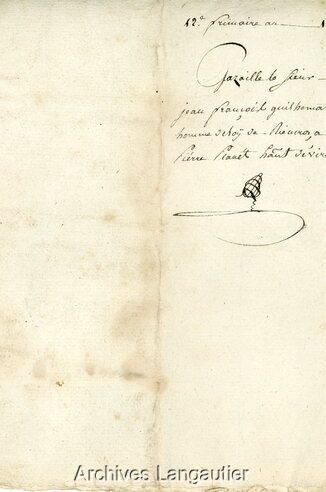 12e frimaire an
Gazaille le sieur
jean françois guilhoma
homme de loy de Rieucros a
Pierre Planét hab.nt de vira
Archives Langautier